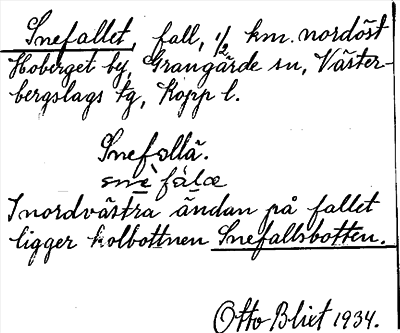 Snefallet, fall, 1/2 km. nordöst
Hoberget by, Grangärde sn, Väster-
bergslags tg, Kopp l.
Snefallä.
snè fálæ
I nordvästra ändan på fallet
ligger kolbottnen Snefallsbotten.
Otto Blixt 1934.